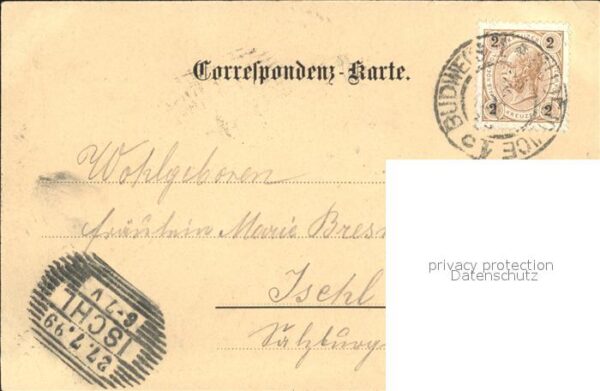 Correspondenz-Karte.
2 2
2 2
KREUZER
BUDWEIS
Wohlgeboren
Fräulein Marie Bres
Ischl
Salzburg
ISCHL
27.7.99
6-7 V
privacy protection
Datenschutz